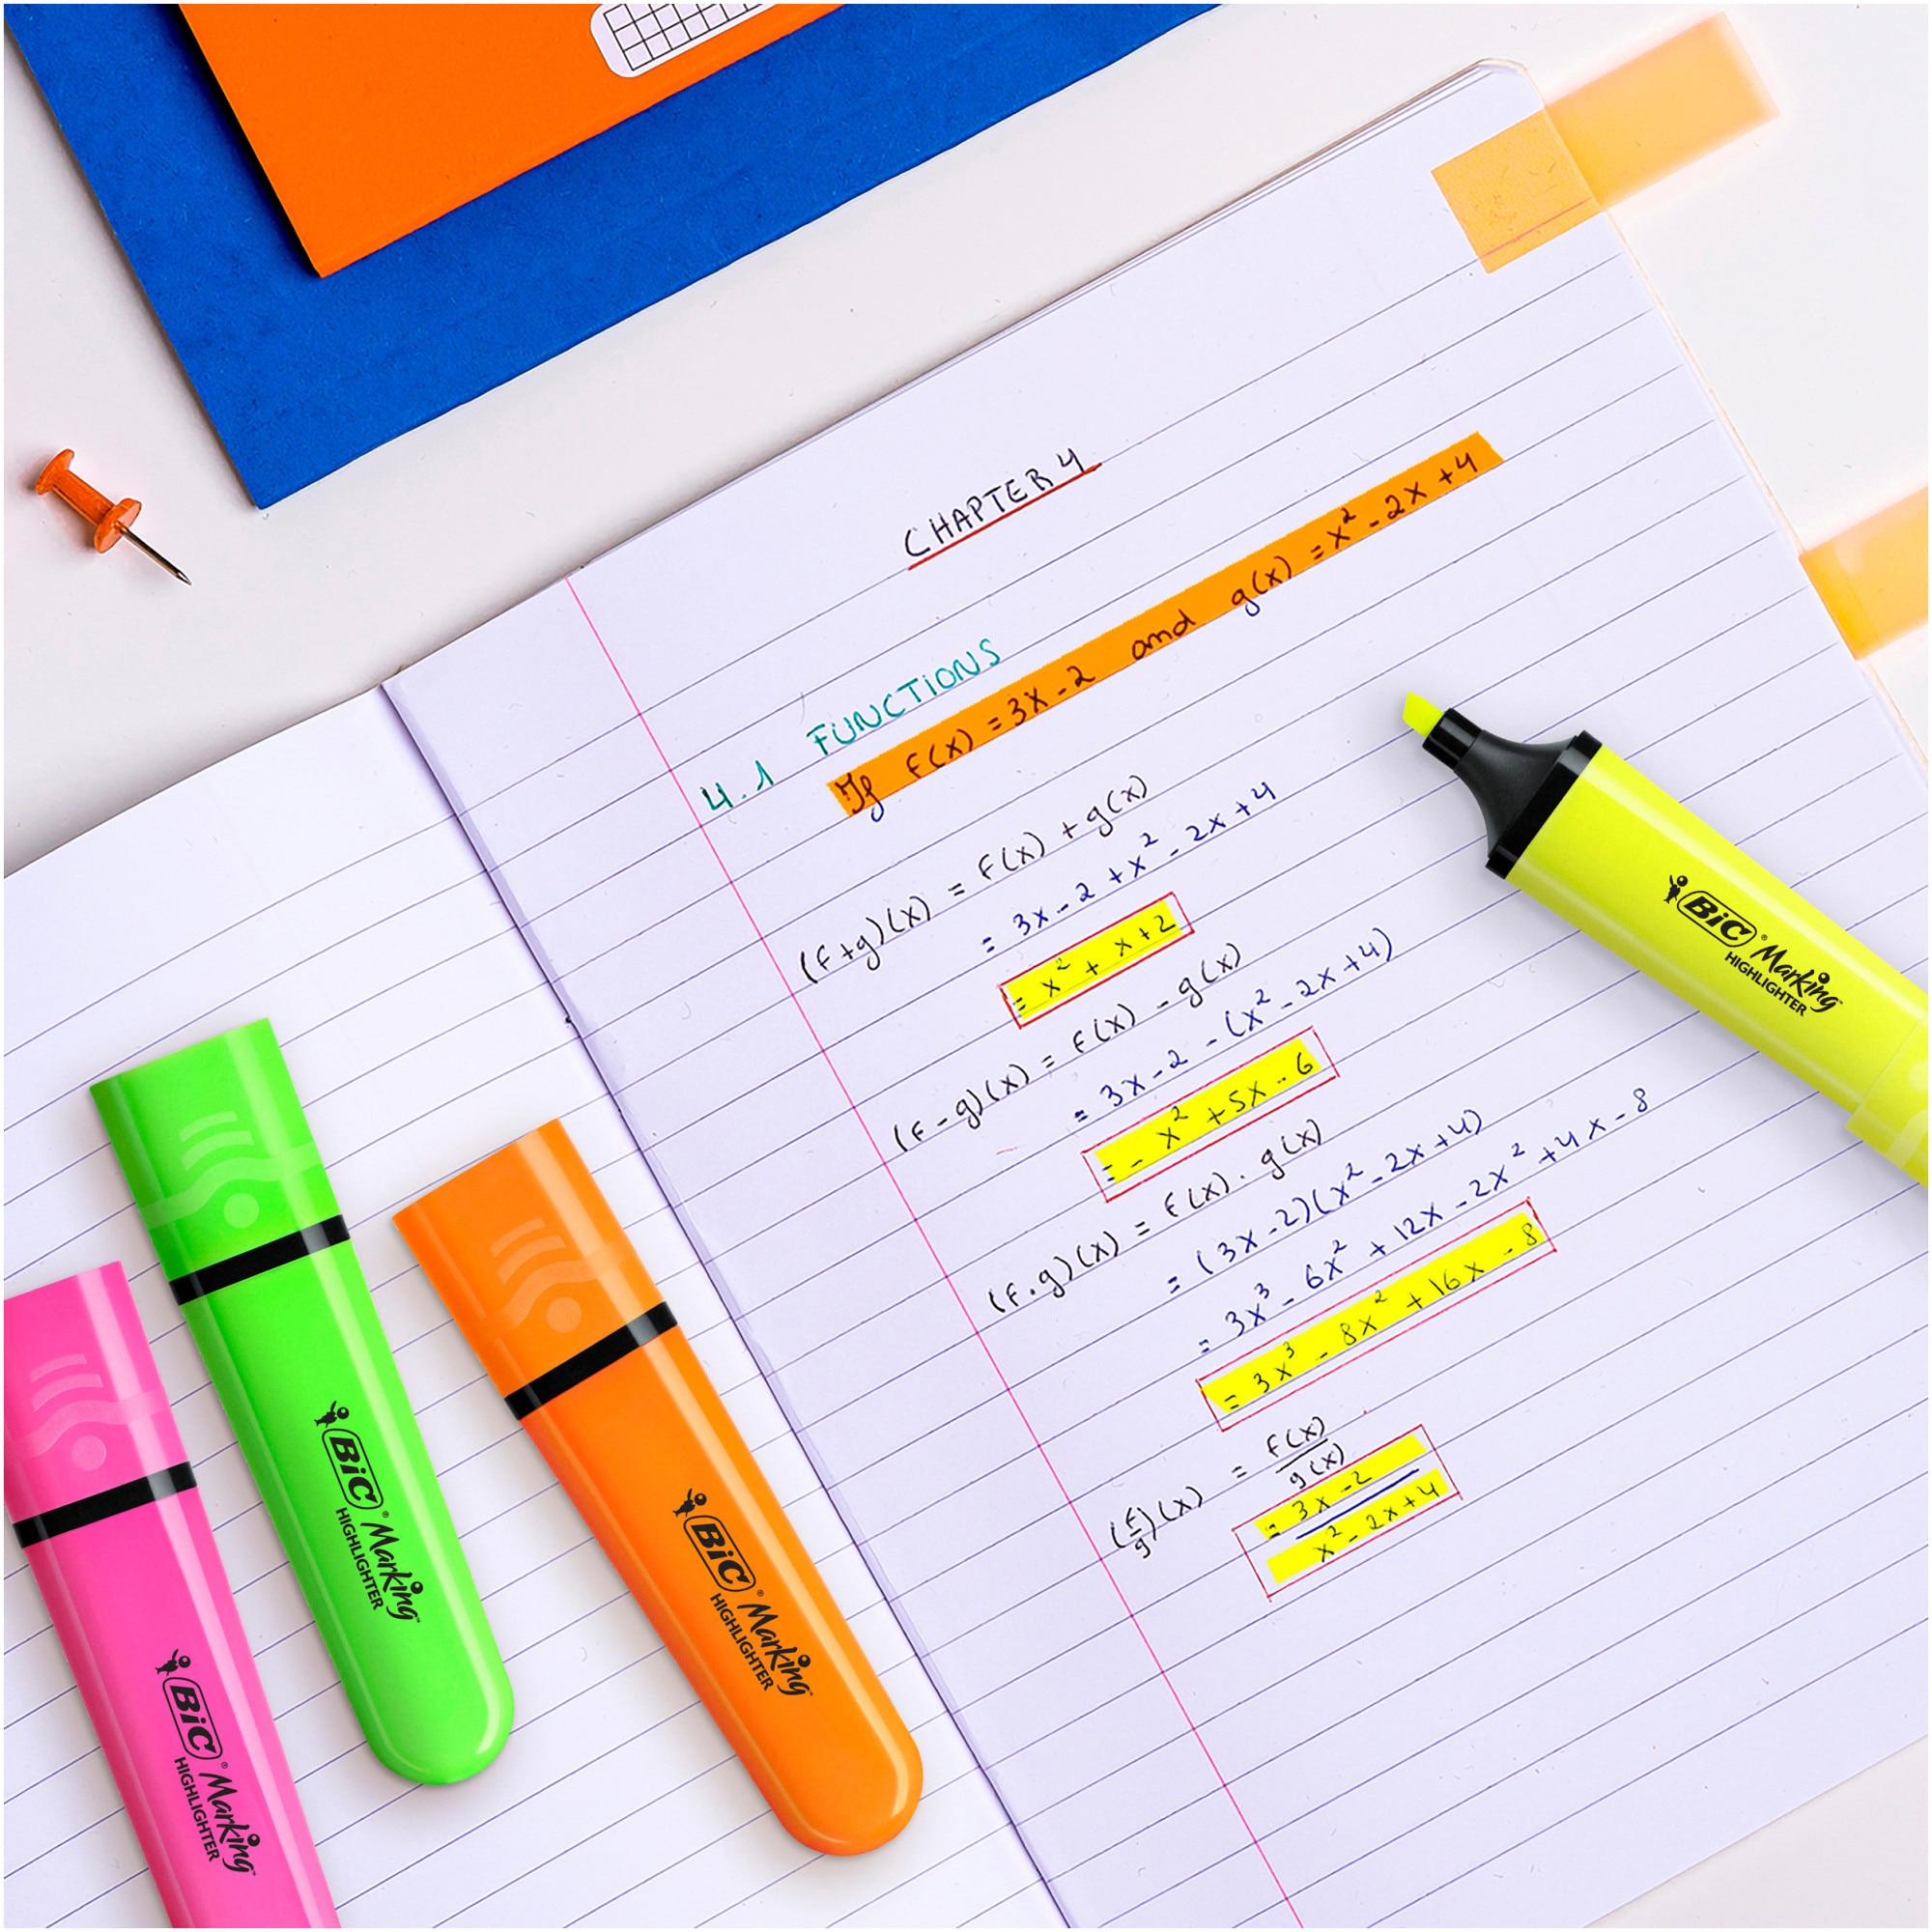 CHAPTER 4
4.1 FUNCTIONS
If f(x) = 3x - 2 and g(x) = x² - 2x + 4
(f + g)(x) = f(x) + g(x)
= 3x - 2 + x² - 2x + 4
= x² + x + 2
(f - g)(x) = f(x) - g(x)
= 3x - 2 - (x² - 2x + 4)
= - x² + 5x - 6
(f . g)(x) = f(x) . g(x)
= (3x - 2)(x² - 2x + 4)
= 3x³ - 6x² + 12x - 2x² + 4x - 8
= 3x³ - 8x² + 16x - 8
(f/g)(x) = f(x)/g(x)
= 3x - 2 / x² - 2x + 4
BiC® Marking™
HIGHLIGHTER
BiC® Marking™
HIGHLIGHTER
BiC® Marking™
HIGHLIGHTER
BiC® Marking™
HIGHLIGHTER